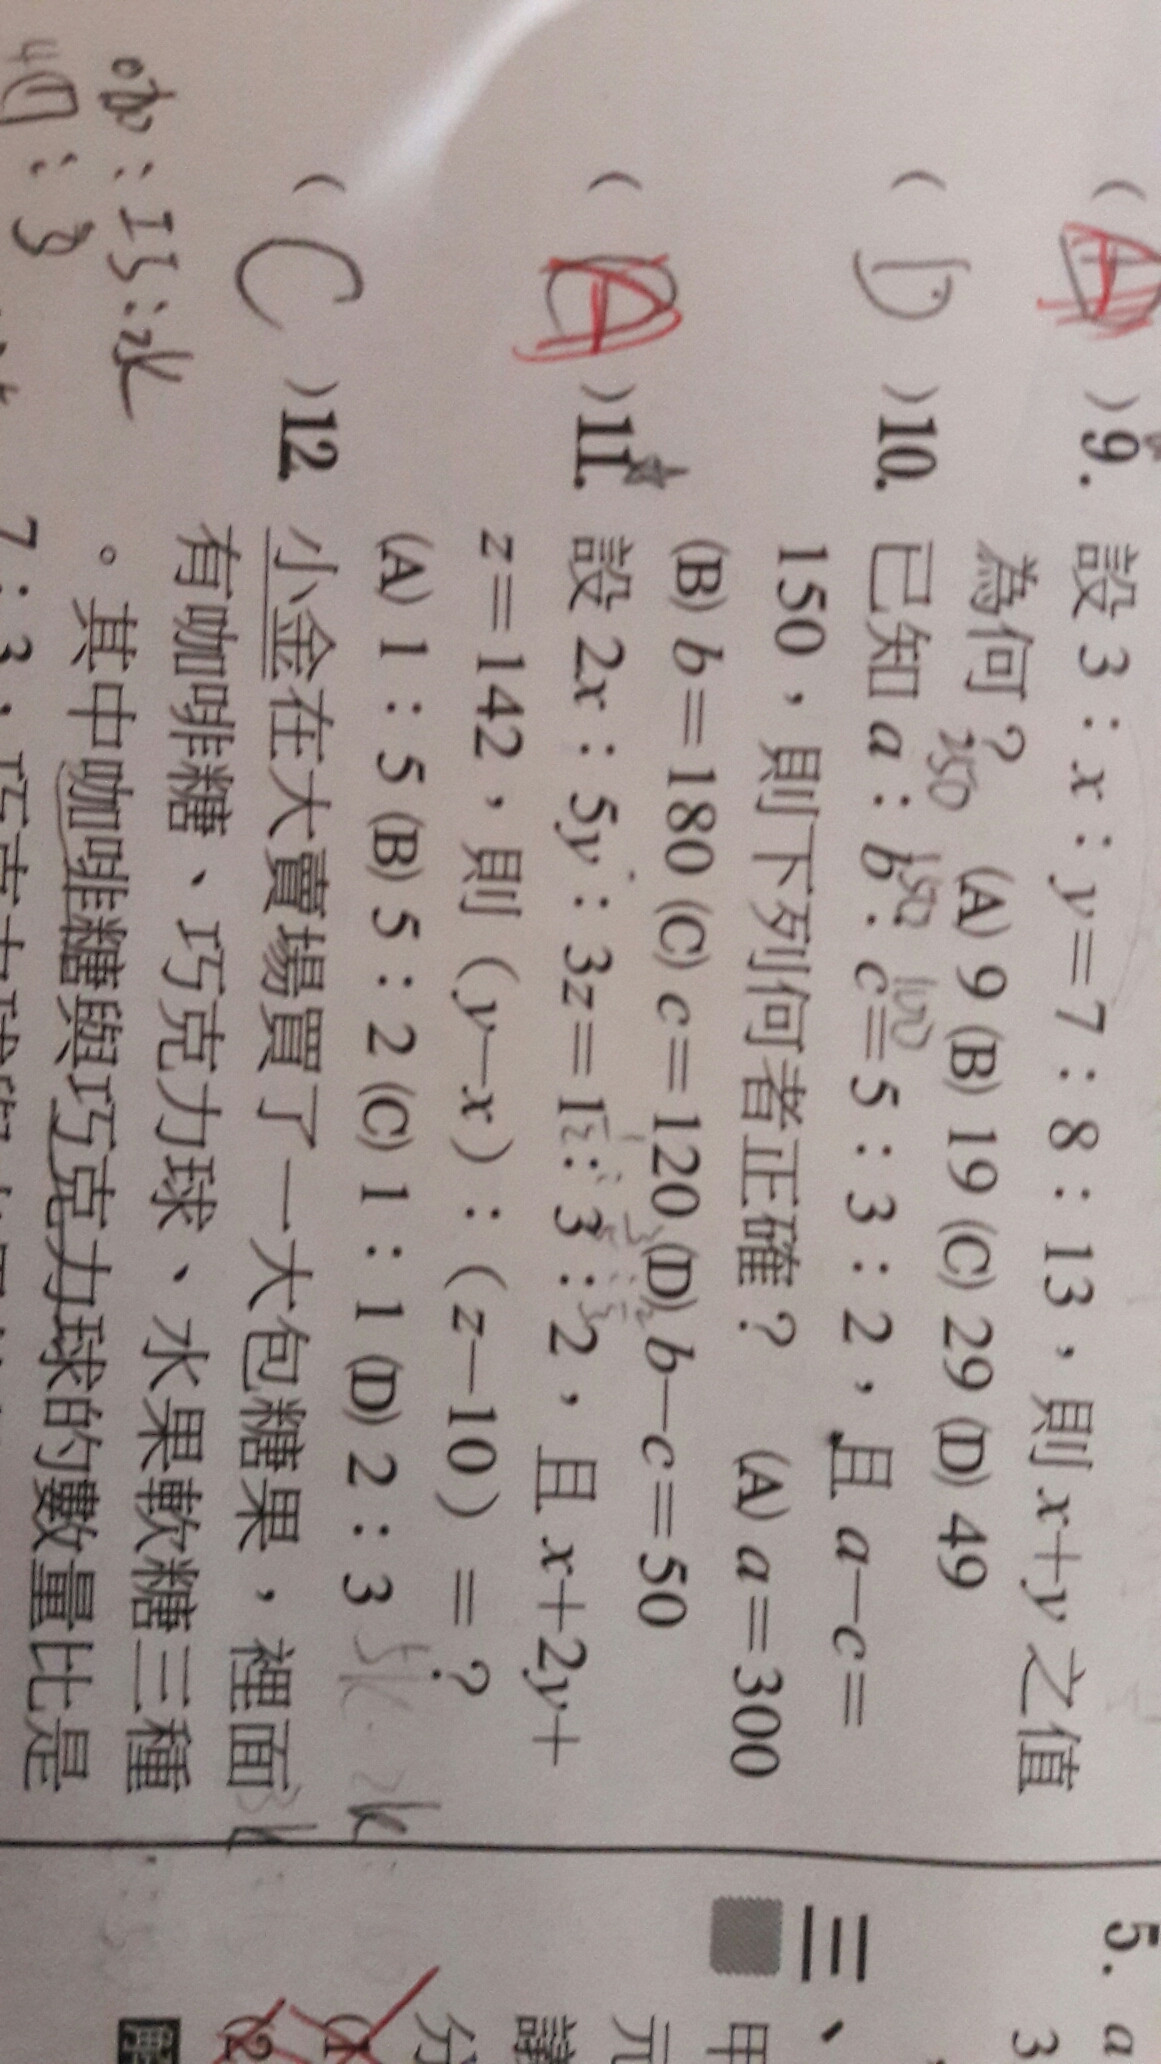 ( A )9. 設 3：x：y＝7：8：13，則 x+y 之值
為何？ (A) 9 (B) 19 (C) 29 (D) 49
250 150 100
( D )10. 已知 a：b：c＝5：3：2，且 a−c＝
150，則下列何者正確？ (A) a＝300
(B) b＝180 (C) c＝120 (D) b−c＝50
( A )11. 設 2x：5y：3z＝1：3：2，且 x+2y+
z＝142，則（y−x）：（z−10）＝？
(A) 1：5 (B) 5：2 (C) 1：1 (D) 2：3
( C )12. 小金在大賣場買了一大包糖果，裡面
有咖啡糖、巧克力球、水果軟糖三種
。其中咖啡糖與巧克力球的數量比是
7：3，巧克力球
咖：巧：水
5. a
3
三、
甲
元
請
分
(1
(2